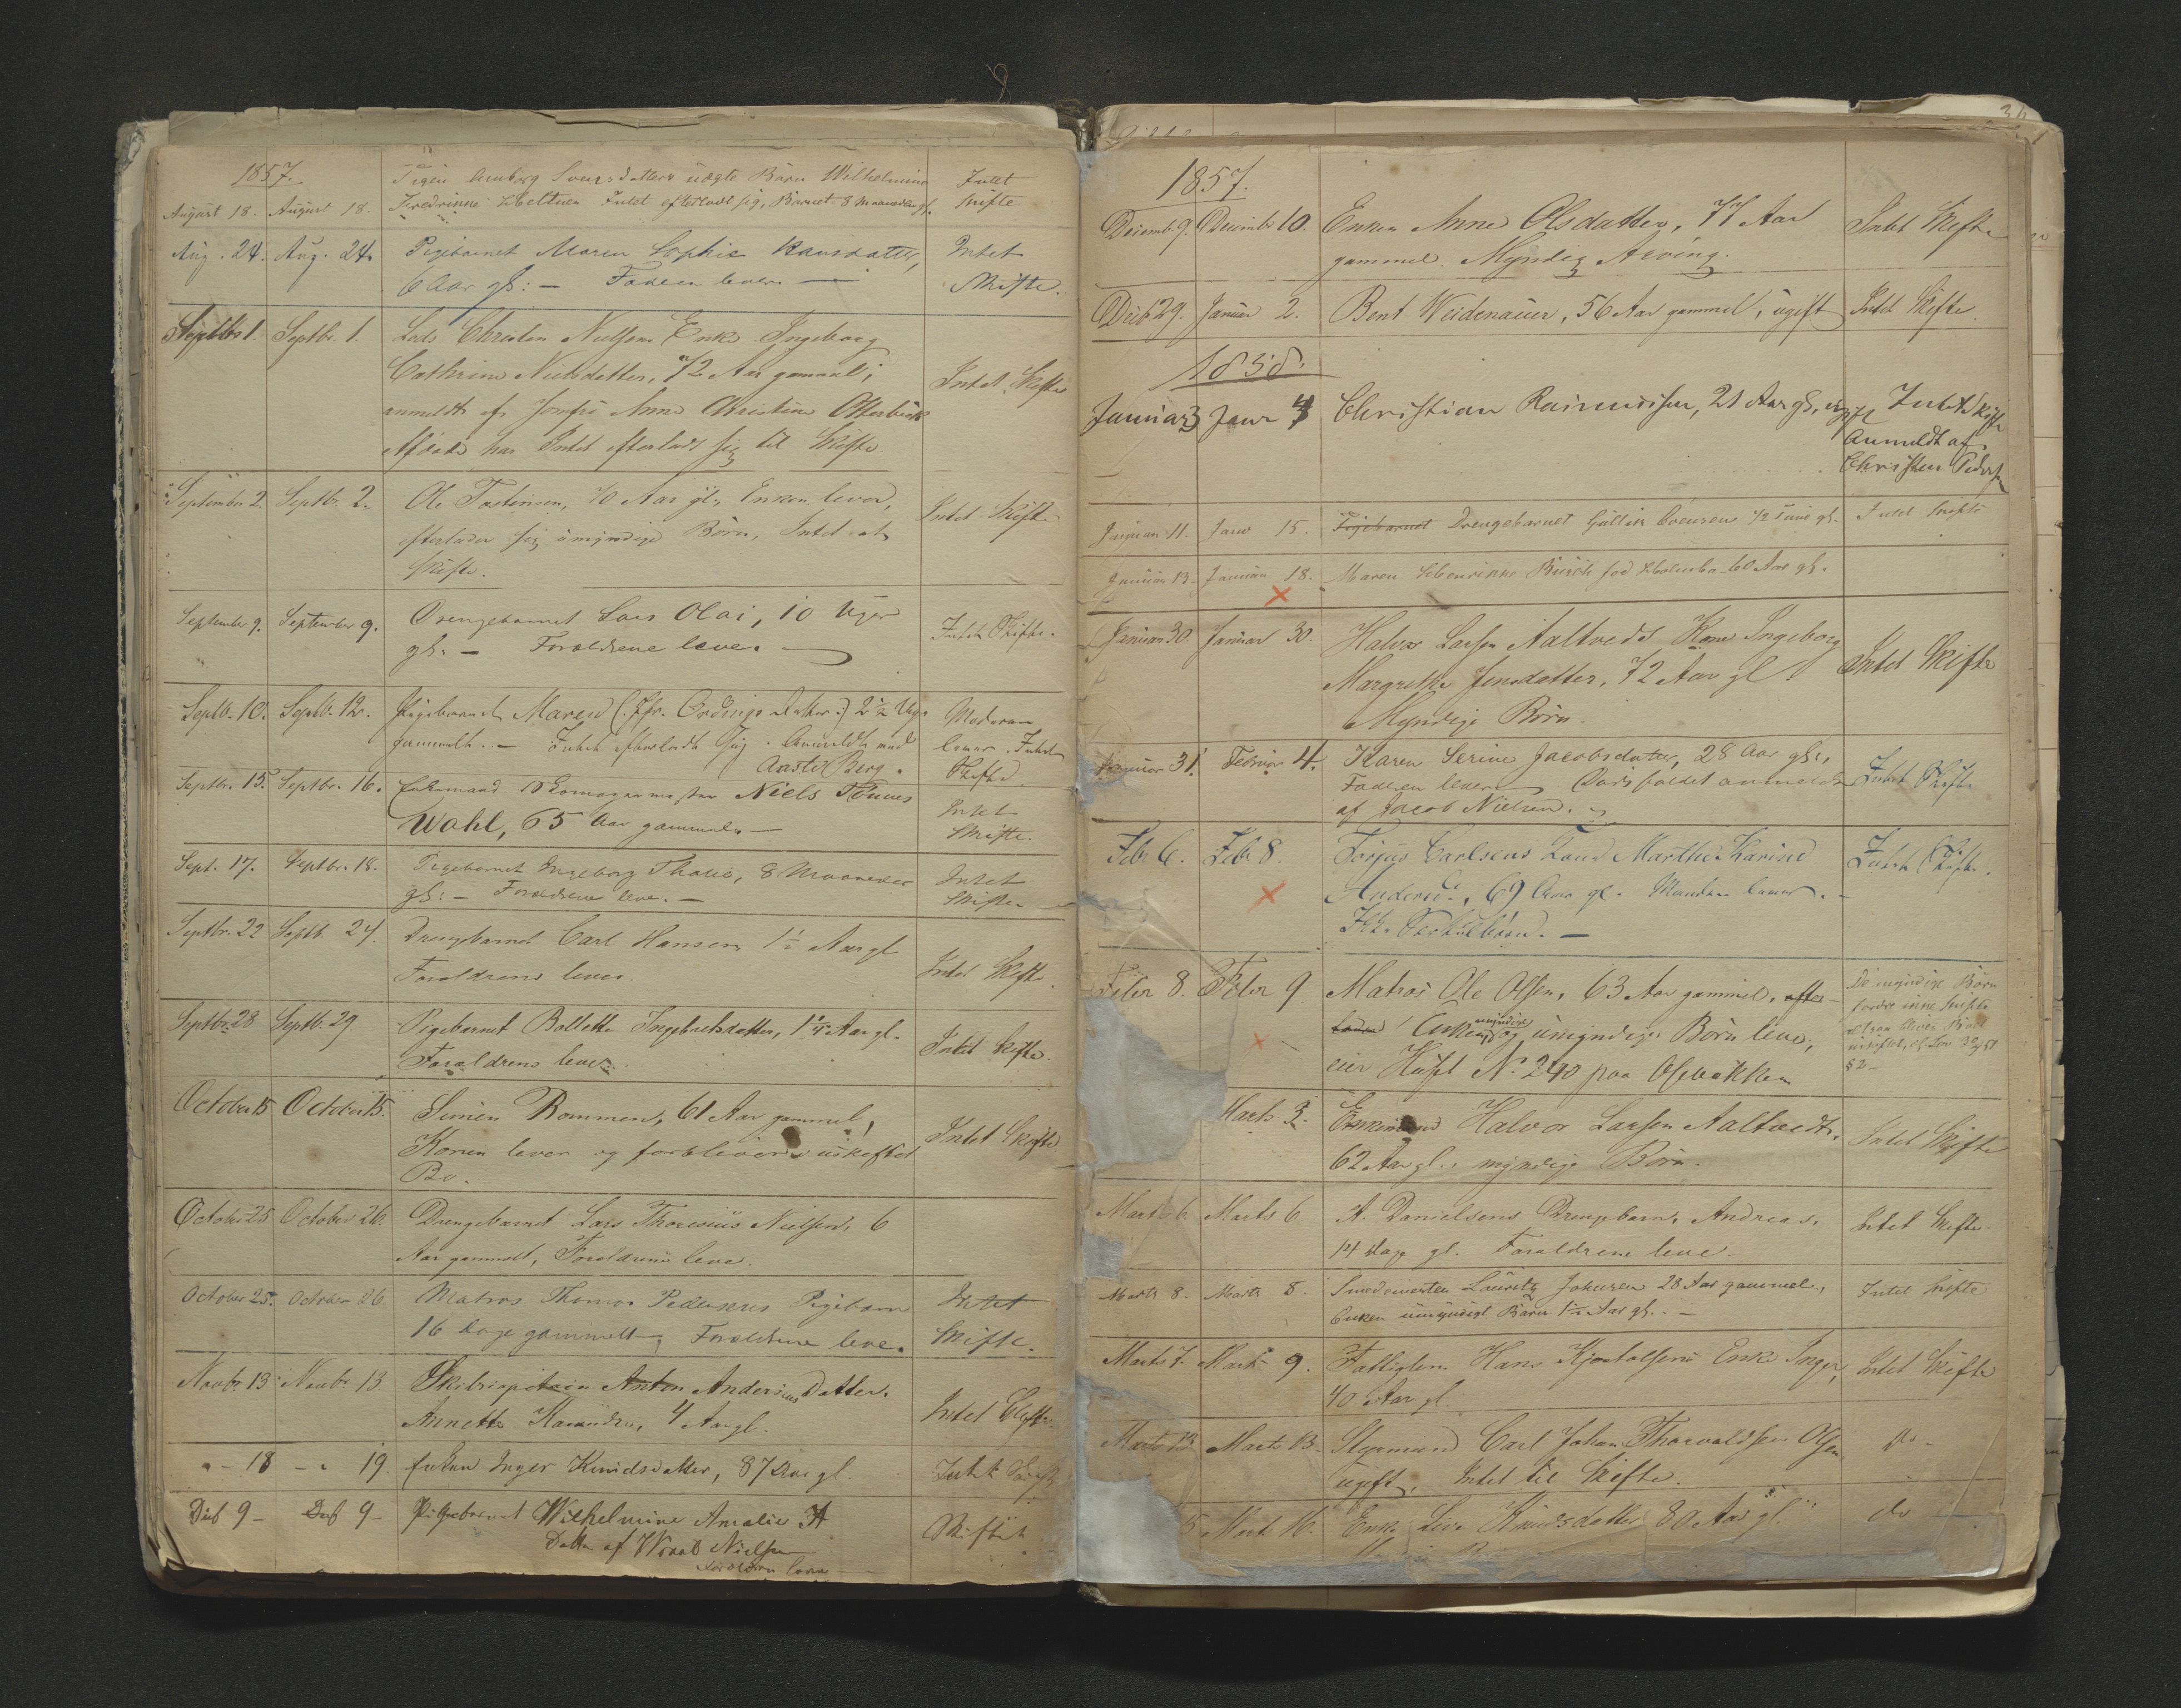 1857.
August 18. August 18. Pigen Aaseborg Svensdatters uægte Barn Wilhelmine Intet
Fredrinne Intet efterladt sig, Barnet 8 Maaneder gl. Skifte
Aug. 24. Aug. 24. Pigebarnet Maren Sophie Hansdatter, Intet
6 Aar gl: — Faderen lever — Skifte.
Septbr 1. Septbr. 1. Lods Christen Nielsens Enke Ingeborg
Cathrine Nielsdatter, 72 Aar gammel; Intet Skifte
anmeldt af Jomfru Anne Christine Otterbeck
Afdøde har Intet efterladt sig til Skifte.
September 2. Septbr. 2. Ole Tostensen, 70 Aar gl., Enken lever, Intet Skifte
efterlader sig umyndige Børn, Intet at
skifte.
September 9. September 9. Drengebarnet Lars Olai, 10 Uger Intet Skifte.
gl. — Forældrene leve. —
Septb. 10. Septb. 12. Pigebarnet Maren 2½ Uge Moderen
gammelt. — Intet efterladt sig. Anmeldt ved lever. Intet
Aaste Berg. Skifte
Septbr. 15. Septbr. 16. Enkemand Skomagermester Niels Tønnes Intet
Wahl, 65 Aar gammel. — Skifte.
Sept. 17. Septbr. 18. Pigebarnet Ingeborg Thalie, 8 Maaneder Intet
gl: — Forældrene leve. — Skifte. —
Septbr. 22 Septb. 24. Drengebarnet Carl Hansen 1½ Aar gl.
Forældrene lever. Intet Skifte.
Septbr. 28 Septb. 29. Pigebarnet Bollette Ingebretsdatter, 1¼ Aar gl.
Forældrene lever. Intet Skifte.
October 15 October 15. Simen Rommen, 61 Aar gammel,
Konen lever og forbliver i uskiftet Intet Skifte
Bo.
October 25 October 26. Drengebarnet Lars Thoresius Nielsen, 6
Aar gammelt, Forældrene leve.
October 25. October 26. Matros Thomas Pedersens Pigebarn Intet
16 Dage gammelt, Forældrene leve. Skifte.
Novbr. 13 Novbr. 13. Skibscapitain Anton Andersens Datter.
Annette 4 Aar gl. Intet Skifte.
" — 18 — " 19. Enken Inger Knudsdatter, 87 Aar gl. Intet Skifte
Decb 9 — Decb 9 — Pigebarnet Wilhelmine Amalie
Datter af Nielsen Skifte
Forældrene leve —
1857.
Decemb. 9. Decembr 10. Enken Anne Olsdatter, 77 Aar Intet Skifte
gammel. Myndig Arving.
Decb 29. Januar 2. Bent Weidenauer, 56 Aar gammel, ugift Intet Skifte.
1858.
Januar 3 Janr 4 Christian Rasmussen, 21 Aar gl., ugift Intet Skifte
Anmeldt af
Christen Peders
Januar 11. Janr 15. Pigebarnet Drengebarnet Gullik 1/2 Time gl. Intet Skifte
Januar 13. Januar 18. Maren Busch fød 60 Aar gl.
Januar 30 Januar 30. Halvor Larsen Aaltvedts Kone Ingeborg
Margrethe Jensdatter, 72 Aar gl. Intet Skifte
Myndige Børn.
Januar 31. Februar 4. Karen Serine Jacobsdatter, 28 Aar gl.,
Faderen lever Dødsfaldet anmeldt Intet Skifte
af Jacob Nielsen.
Febr 6. Febr 8. Torjus Carlsens Kone Marthe Karine Intet Skifte.
69 Aar gl. Manden lever. —
Febr 8. Febr 9 Matros Ole Olsen, 63 Aar gammel, efter- De myndige Børn
lader Enken og myndige umyndige Børn lever, fordre ikke Skifte
eier Huset No 240 paa
§ 2 —
Marts 3. Enkemand Halvor Larsen Aaltvedt. Intet Skifte
62 Aar gl., myndige Børn.
Marts 6. Marts 6. A. Danielsens Drengebarn, Andreas, Intet Skifte.
14 Dage gl. Forældrene leve.
Marts 8. Marts 8. Smedemester Lauritz Johnsen 28 Aar gammel., Intet Skifte
Enken umyndigt Barn 1½ Aar gl. —
Marts 7. Marts 9. Fattiglem Hans Kjøstolfsens Enke Inger, Intet Skifte
40 Aar gl.
Marts 13. Marts 13. Styrmand Carl Johan Thorvaldsen Olsen, do —
ugift, Intet til Skifte.
15 Marts 16. Enke Live Knudsdatter 80 Aar gl. do —